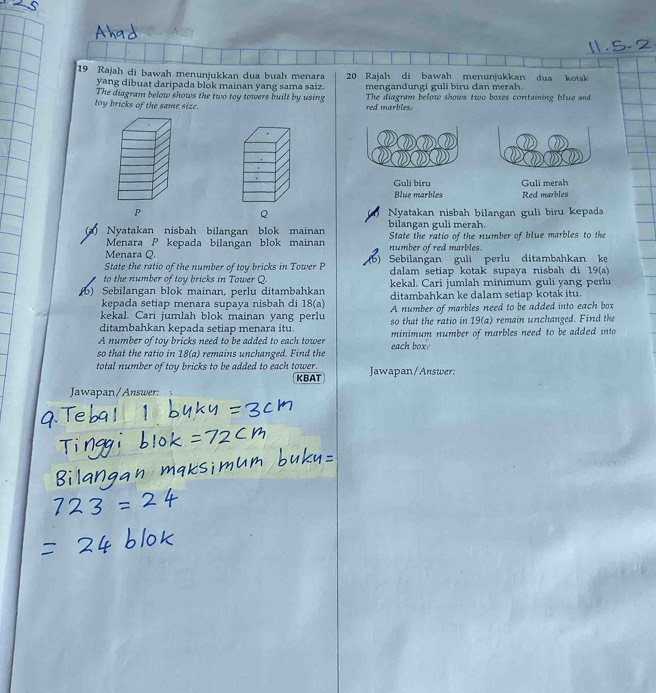 Ahad
11.5.2
19 Rajah di bawah menunjukkan dua buah menara
yang dibuat daripada blok mainan yang sama saiz.
The diagram below shows the two toy towers built by using
toy bricks of the same size.
P
Q
(a) Nyatakan nisbah bilangan blok mainan
Menara P kepada bilangan blok mainan
Menara Q.
State the ratio of the number of toy bricks in Tower P
to the number of toy bricks in Tower Q.
(b) Sebilangan blok mainan, perlu ditambahkan
kepada setiap menara supaya nisbah di 18(a)
kekal. Cari jumlah blok mainan yang perlu
ditambahkan kepada setiap menara itu.
A number of toy bricks need to be added to each tower
so that the ratio in 18(a) remains unchanged. Find the
total number of toy bricks to be added to each tower.
KBAT
Jawapan/Answer:
a. Tebal 1 buku = 3cm
Tinggi blok = 72cm
Bilangan maksimum buku =
723 = 24
= 24 blok
20 Rajah di bawah menunjukkan dua kotak
mengandungi guli biru dan merah.
The diagram below shows two boxes containing blue and
red marbles.
Guli biru
Blue marbles
Guli merah
Red marbles
(a) Nyatakan nisbah bilangan guli biru kepada
bilangan guli merah.
State the ratio of the number of blue marbles to the
number of red marbles.
(b) Sebilangan guli perlu ditambahkan ke
dalam setiap kotak supaya nisbah di 19(a)
kekal. Cari jumlah minimum guli yang perlu
ditambahkan ke dalam setiap kotak itu.
A number of marbles need to be added into each box
so that the ratio in 19(a) remain unchanged. Find the
minimum number of marbles need to be added into
each box.
Jawapan/Answer: